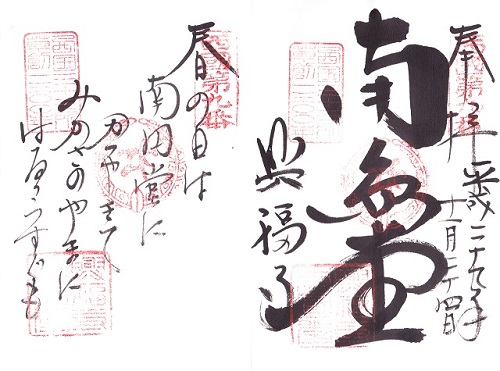 奉拝
平成二十九年
十一月二十四日
南円堂
興福寺
西国第九番
春の日は
南円堂に
かゝやきて
みかさのやまに
はるゝうすぐも
西国第九番